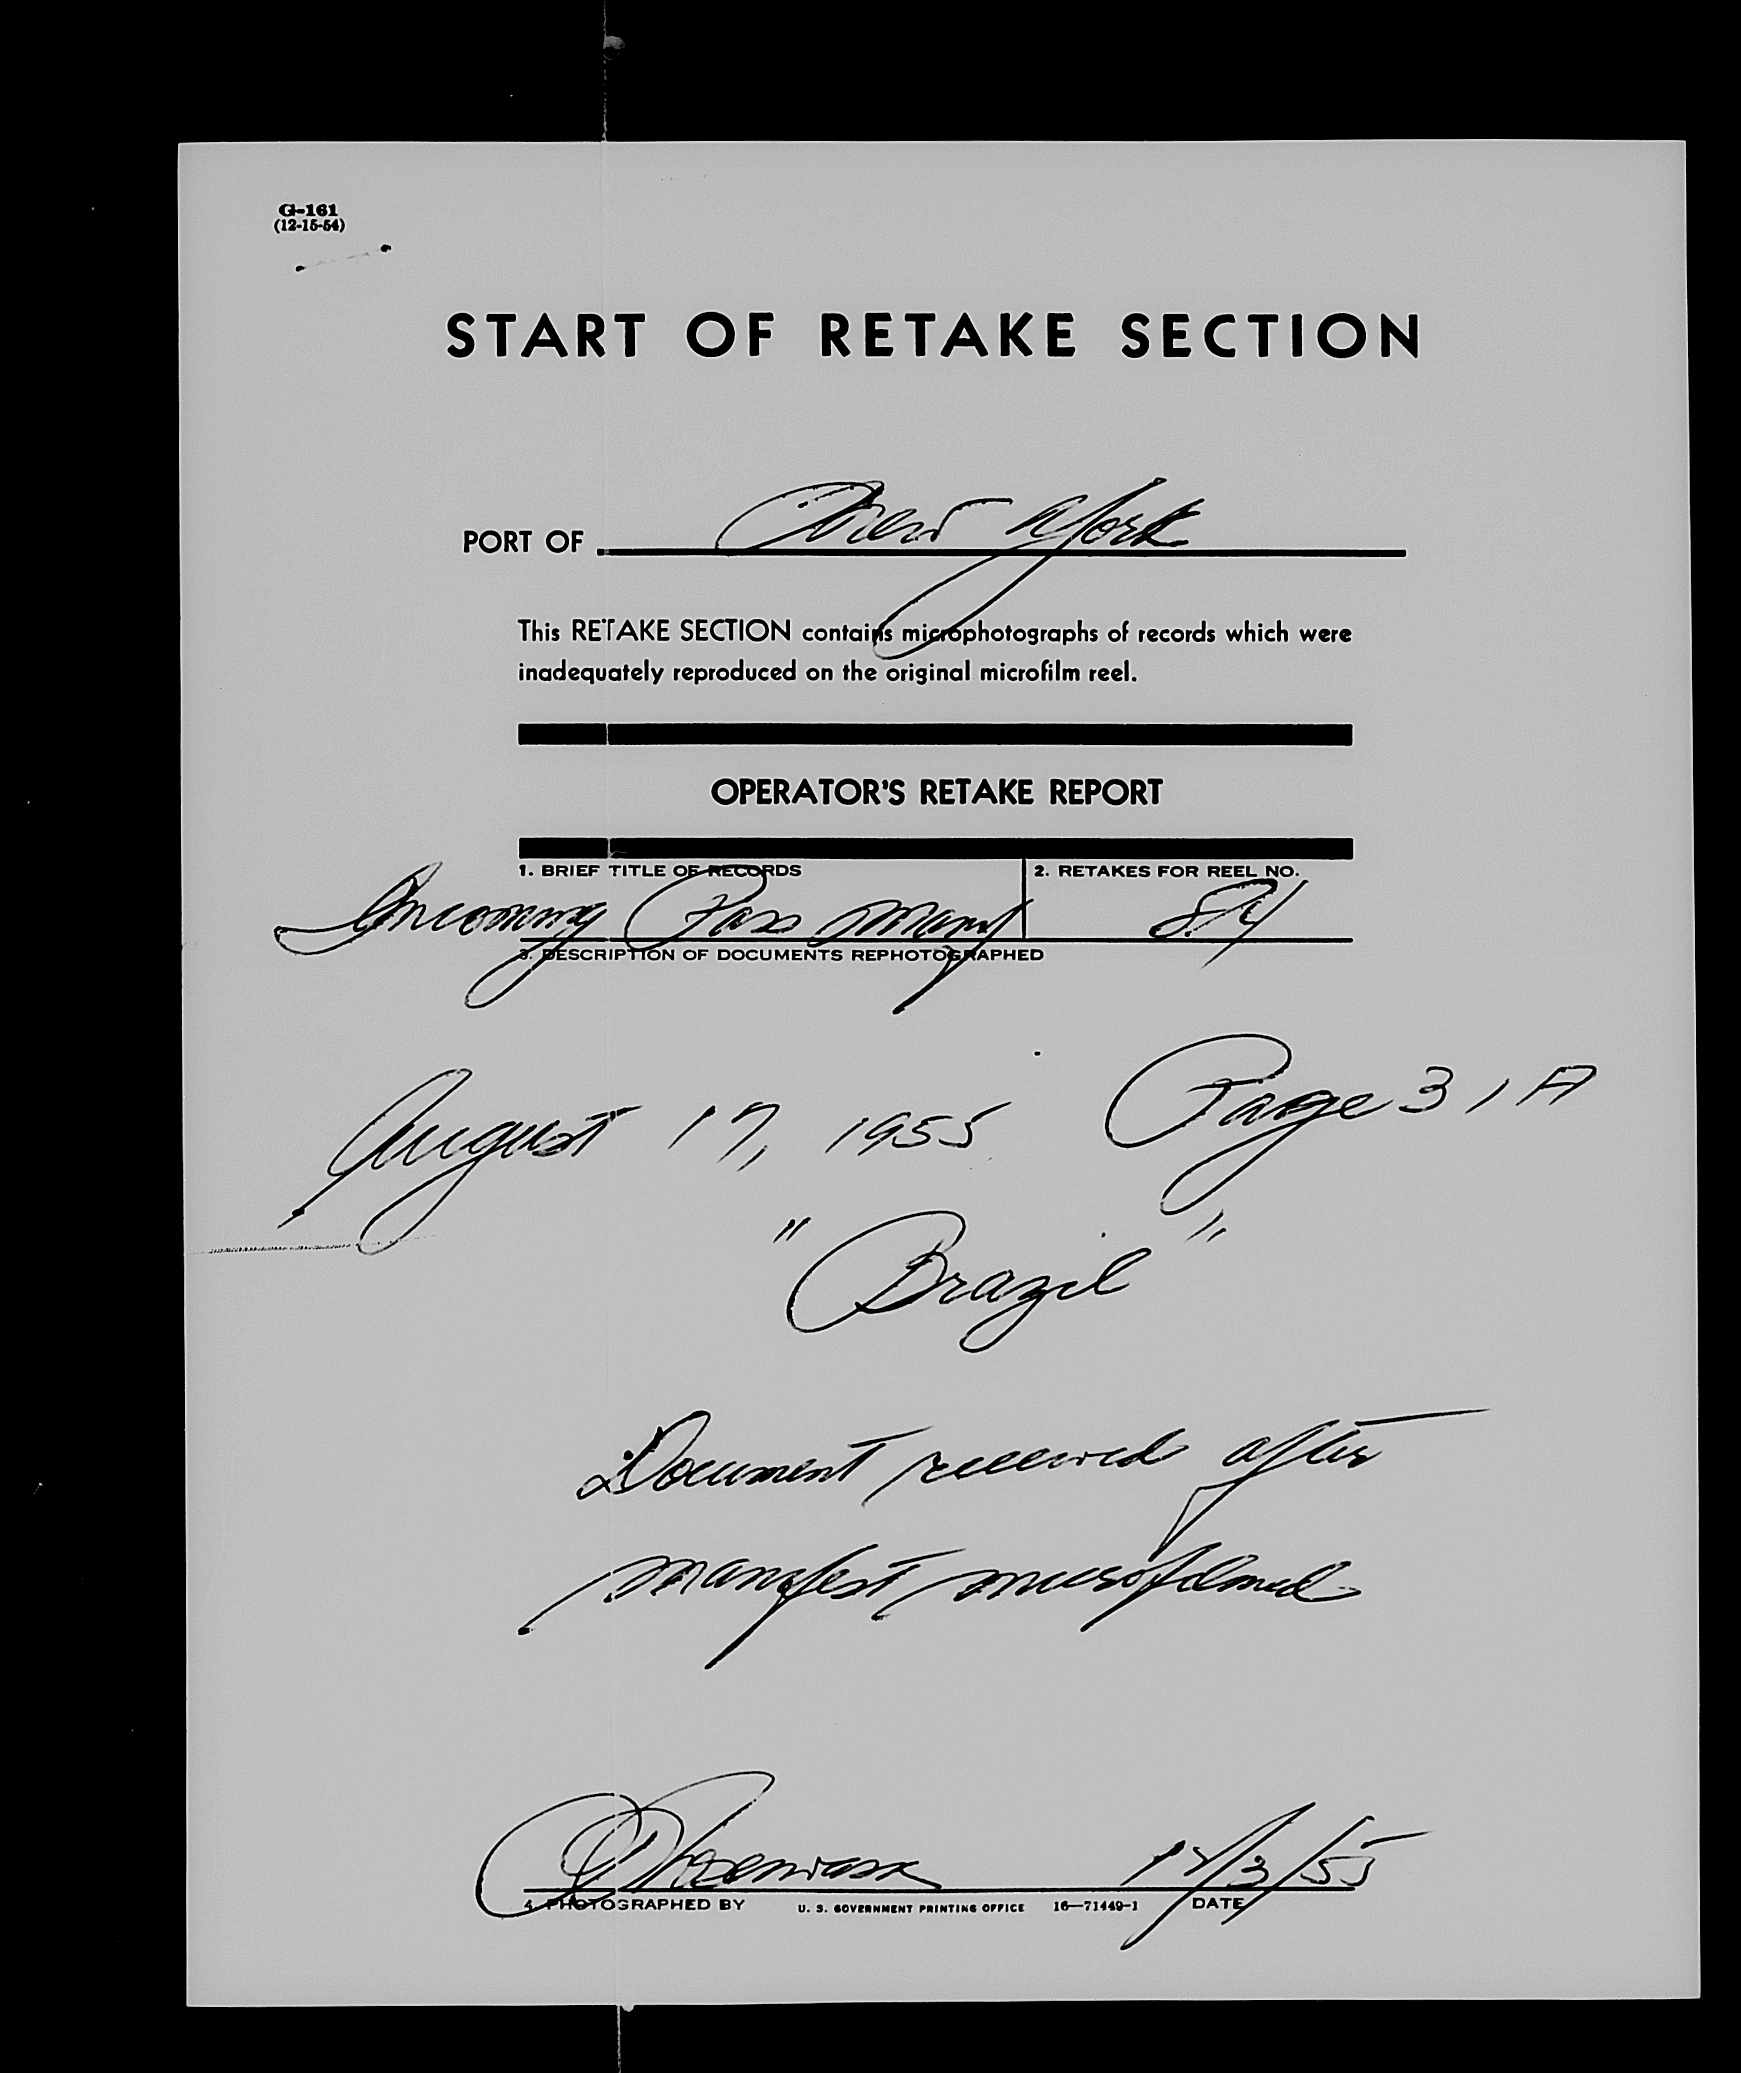 G-161
(12-15-54)
START OF RETAKE SECTION
PORT OF New York
This RETAKE SECTION contains microphotographs of records which were
inadequately reproduced on the original microfilm reel.
OPERATOR'S RETAKE REPORT
1. BRIEF TITLE OF RECORDS 2. RETAKES FOR REEL NO.
Incoming Pass Manf
3. DESCRIPTION OF DOCUMENTS REPHOTOGRAPHED
August 17, 1955 Page 31A
"Brazil"
Document received after
manifest microfilmed
12/3/55
4. PHOTOGRAPHED BY U. S. GOVERNMENT PRINTING OFFICE 16—71449-1 DATE